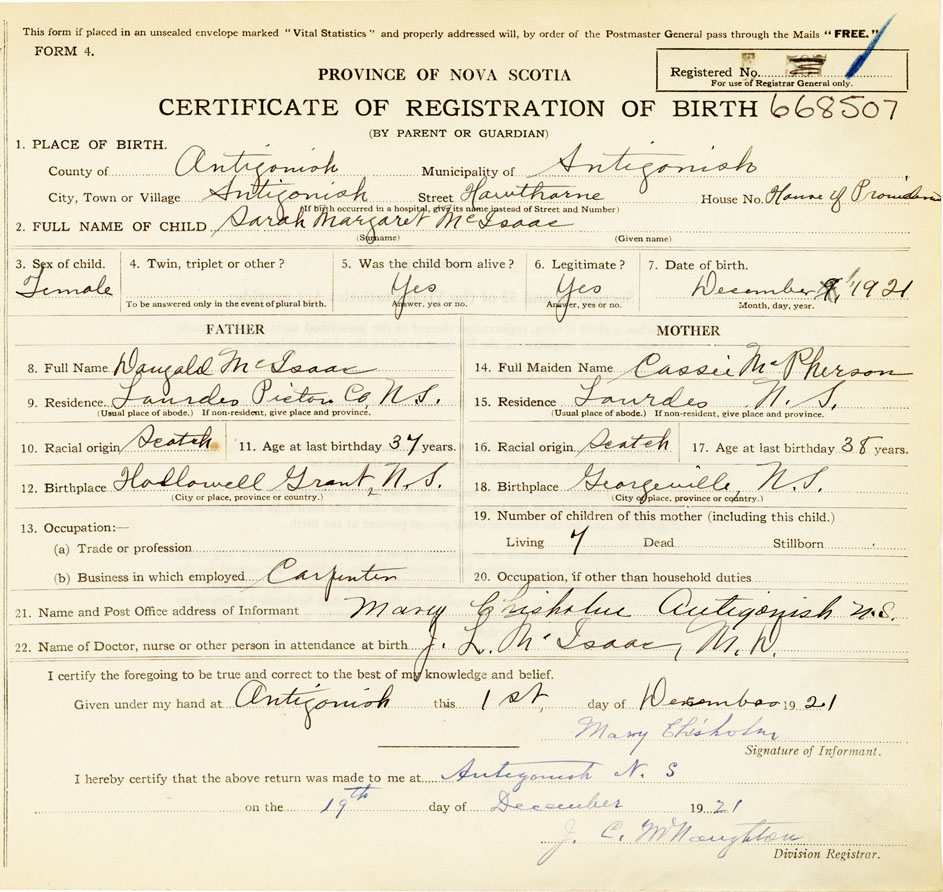 This form if placed in an unsealed envelope marked "Vital Statistics" and properly addressed will, by order of the Postmaster General pass through the Mails "FREE."
FORM 4.
PROVINCE OF NOVA SCOTIA
Registered No.
For use of Registrar General only.
CERTIFICATE OF REGISTRATION OF BIRTH 668507
(BY PARENT OR GUARDIAN)
1. PLACE OF BIRTH.
County of Antigonish Municipality of Antigonish
City, Town or Village Antigonish Street Hawthorne House No. House of Providence
(If birth occurred in a hospital, give its name instead of Street and Number)
2. FULL NAME OF CHILD Sarah Margaret McIsaac
(Surname) (Given name)
3. Sex of child. 4. Twin, triplet or other? 5. Was the child born alive? 6. Legitimate? 7. Date of birth.
Female Yes Yes December 1, 1921
To be answered only in the event of plural birth. Answer, yes or no. Answer, yes or no. Month, day, year.
FATHER MOTHER
8. Full Name Dougald McIsaac 14. Full Maiden Name Cassie McPherson
9. Residence Lourdes Pictou Co N.S. 15. Residence Lourdes N.S.
(Usual place of abode.) If non-resident, give place and province. (Usual place of abode.) If non-resident, give place and province.
10. Racial origin Scotch 11. Age at last birthday 37 years. 16. Racial origin Scotch 17. Age at last birthday 38 years.
12. Birthplace Hollowell Grant, N.S. 18. Birthplace Georgeville, N.S.
(City or place, province or country.) (City or place, province or country.)
13. Occupation:— 19. Number of children of this mother (including this child.)
(a) Trade or profession Living 7 Dead Stillborn
(b) Business in which employed Carpenter 20. Occupation, if other than household duties
21. Name and Post Office address of Informant Mary Chisholm Antigonish N.S.
22. Name of Doctor, nurse or other person in attendance at birth J. L. McIsaac, M.D.
I certify the foregoing to be true and correct to the best of my knowledge and belief.
Given under my hand at Antigonish this 1st, day of December 1921
Mary Chisholm
Signature of Informant.
I hereby certify that the above return was made to me at Antigonish N. S
on the 19th day of December 1921
J. C. McNaughton
Division Registrar.